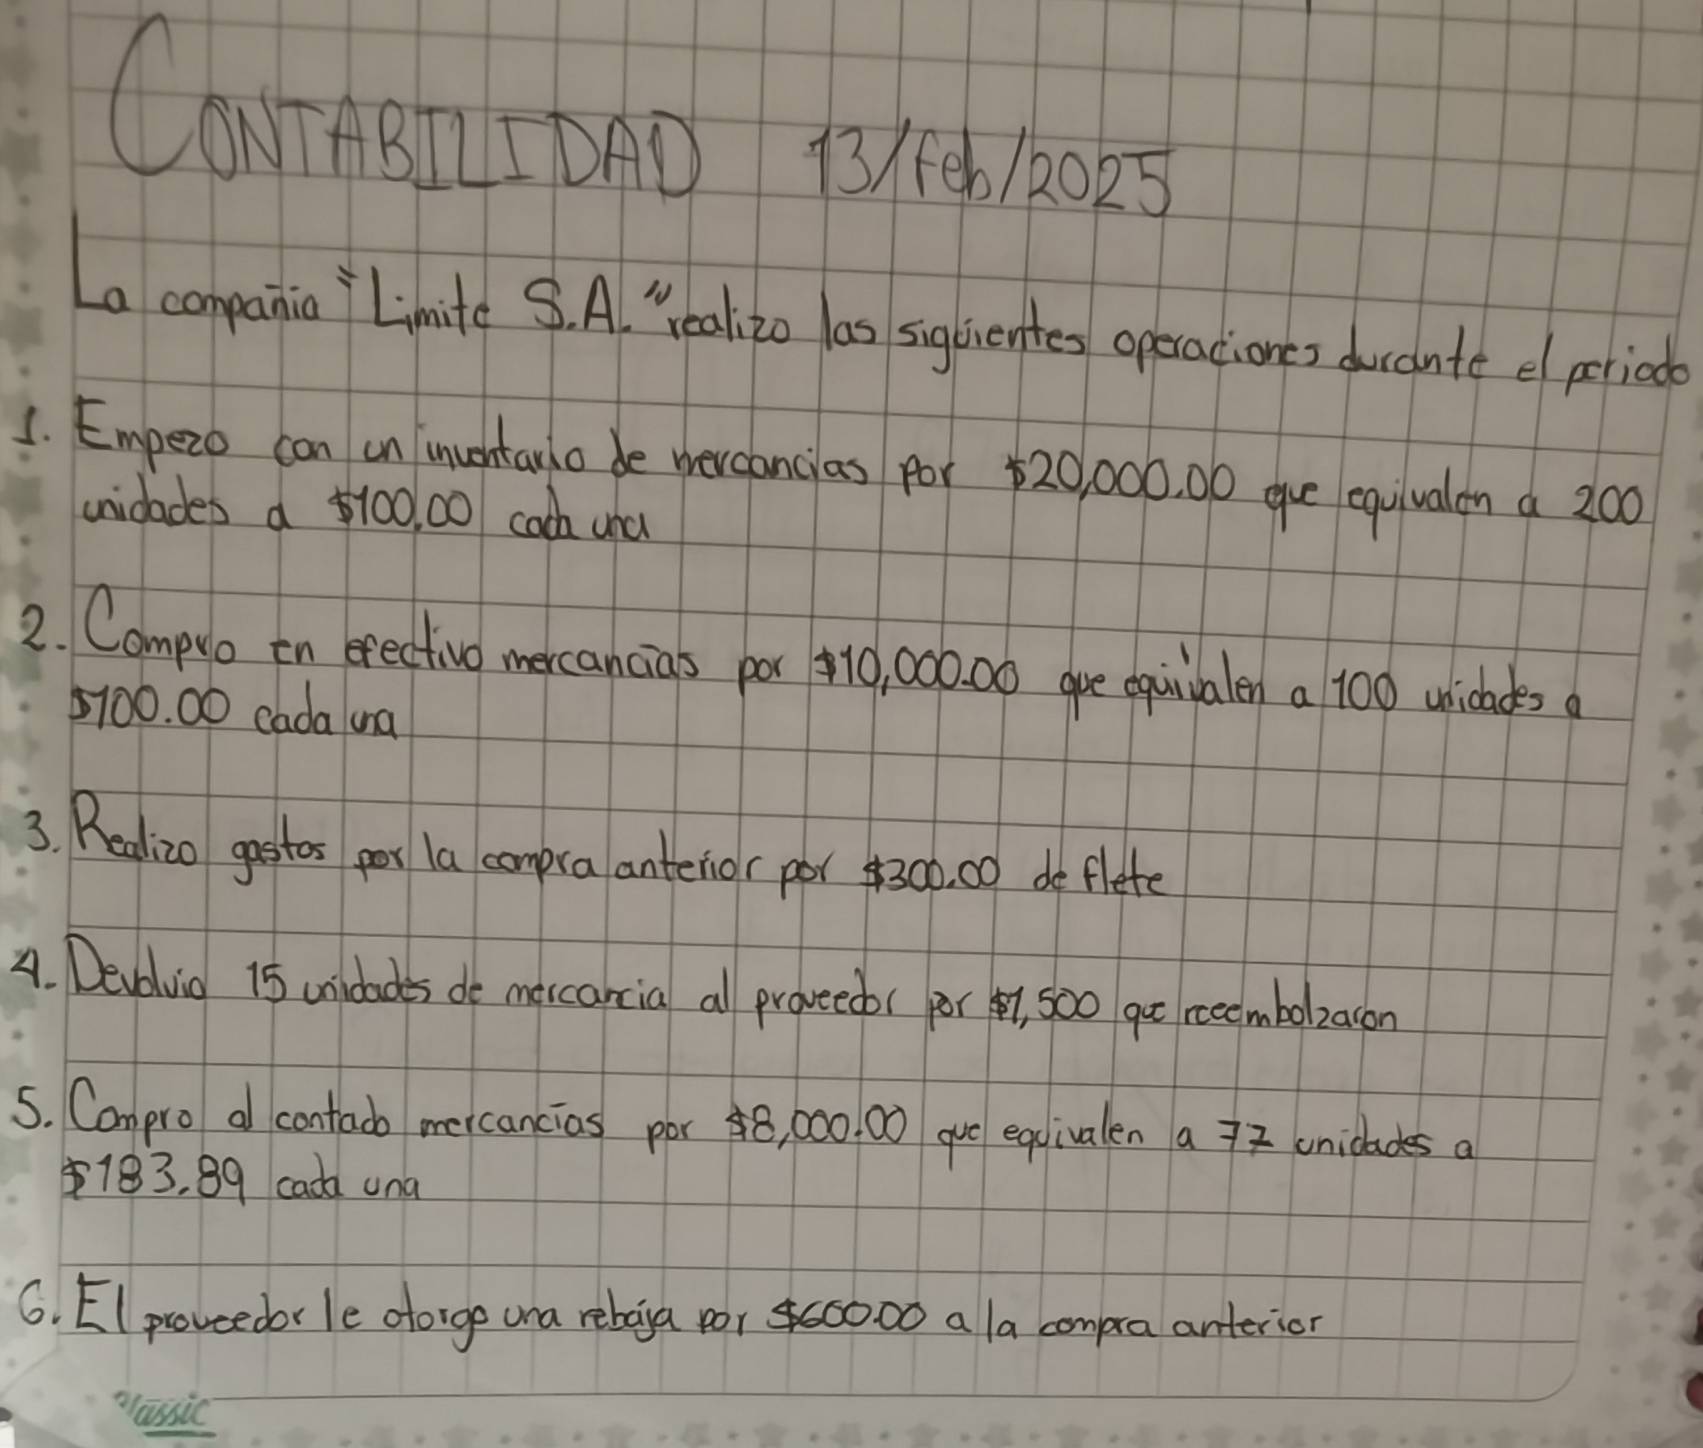 CONTABILIDAD 13/Feb/2025
La compañia "Limite S.A." realizo las siguientes operaciones durante el periodo
1. Empezo con un inventario de mercancias por $20,000.00 que equivalen a 200
unidades a $100.00 cada una
2. Compro en efectivo mercancias por $10,000.00 que equivalen a 100 unidades a
$100.00 cada una
3. Realizo gastos por la compra anterior por $300.00 de flete
4. Devolvio 15 unidades de mercancia al proveedor por $1,500 que reembolzaron
5. Compro al contado mercancías por $8,000.00 que equivalen a 77 unidades a
$183.89 cada una
6. El proveedor le otorgo una rebaja por $600.00 a la compra anterior
Classic